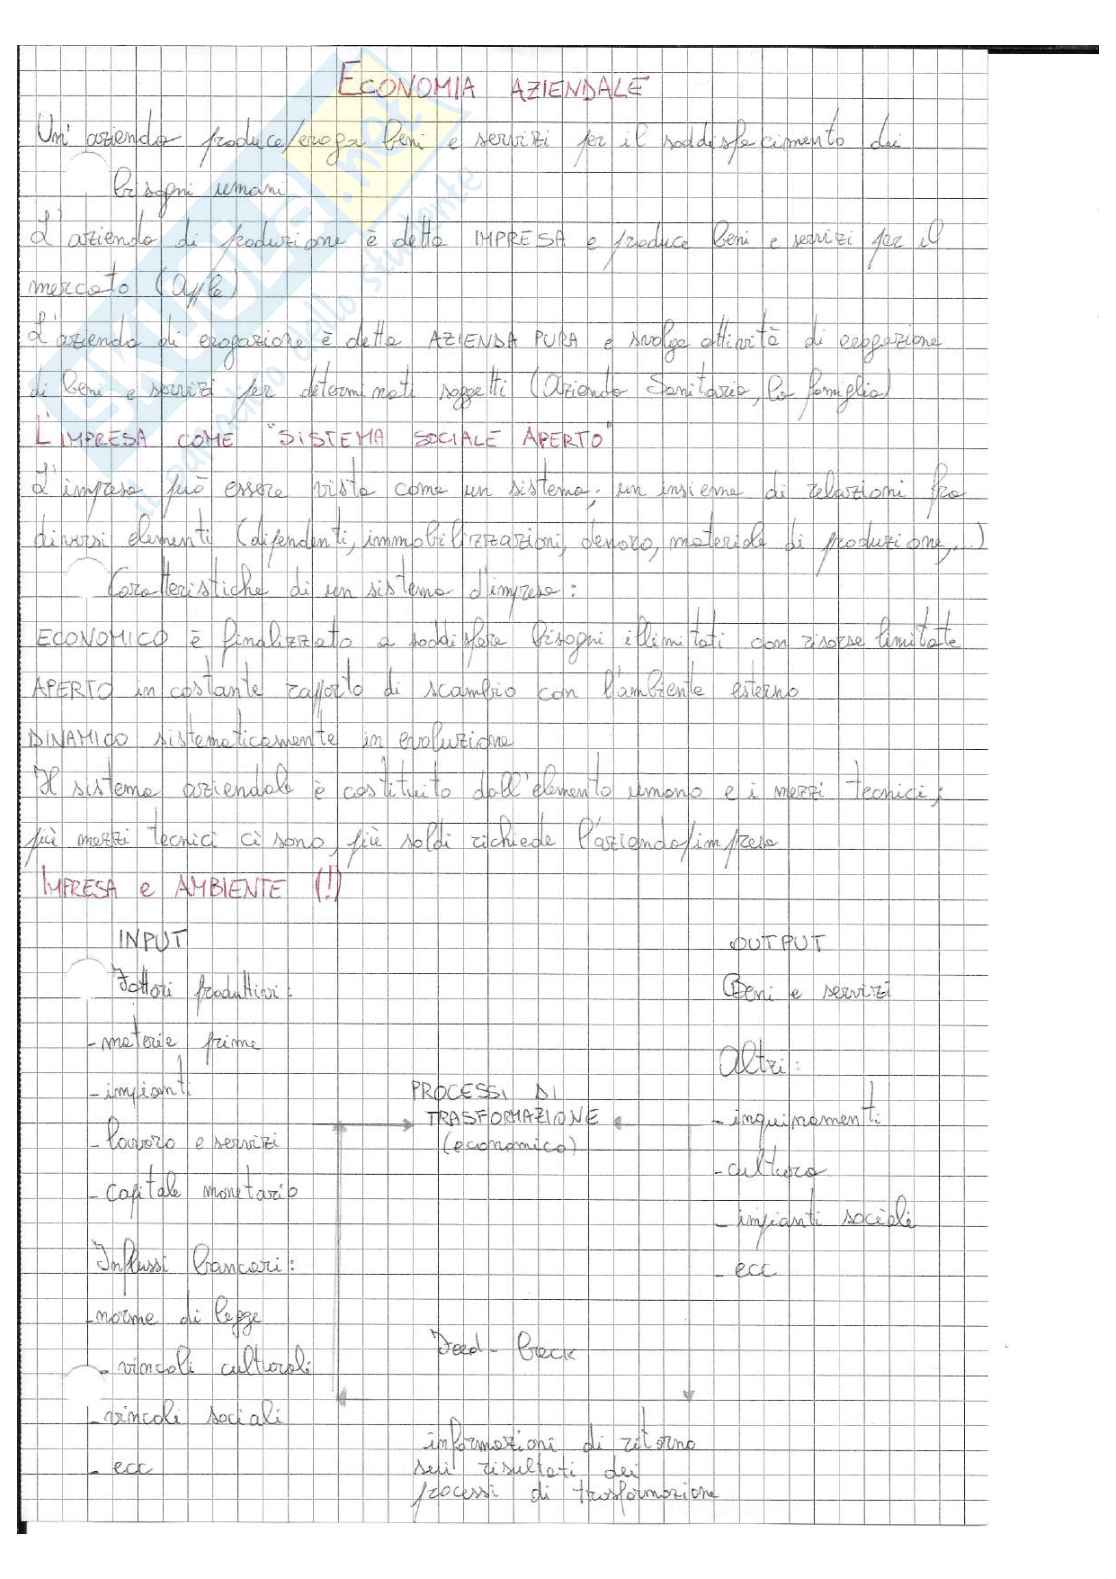 ECONOMIA AZIENDALE
Un' azienda produce/eroga beni e servizi per il soddisfacimento dei
bisogni umani
L'azienda di produzione è detta IMPRESA e produce beni e servizi per il
mercato (Apple)
L'azienda di erogazione è detta AZIENDA PURA e svolge attività di erogazione
di beni e servizi per determinati soggetti (Azienda Sanitaria, la famiglia)
L'IMPRESA COME "SISTEMA SOCIALE APERTO"
L'impresa può essere vista come un sistema: un insieme di relazioni fra
diversi elementi (dipendenti, immobilizzazioni, denaro, materiale di produzione,...)
Caratteristiche di un sistema d'impresa:
ECONOMICO è finalizzato a soddisfare bisogni illimitati con risorse limitate
APERTO in costante rapporto di scambio con l'ambiente esterno
DINAMICO sistematicamente in evoluzione
Il sistema aziendale è costituito dall'elemento umano e i mezzi tecnici;
più mezzi tecnici ci sono, più soldi richiede l'azienda/impresa
IMPRESA e AMBIENTE (!)
INPUT
Fattori produttivi:
- materie prime
- impianti
- lavoro e servizi
- capitale monetario
Influssi bancari:
- norme di legge
- vincoli culturali
- vincoli sociali
- ecc
PROCESSI DI
TRASFORMAZIONE
(economico)
Feed-back
informazioni di ritorno
sui risultati dei
processi di trasformazione
OUTPUT
Beni e servizi
Altri:
- inquinamenti
- cultura
- impianti sociali
- ecc
SKUOLA.net
il paradiso dello studente